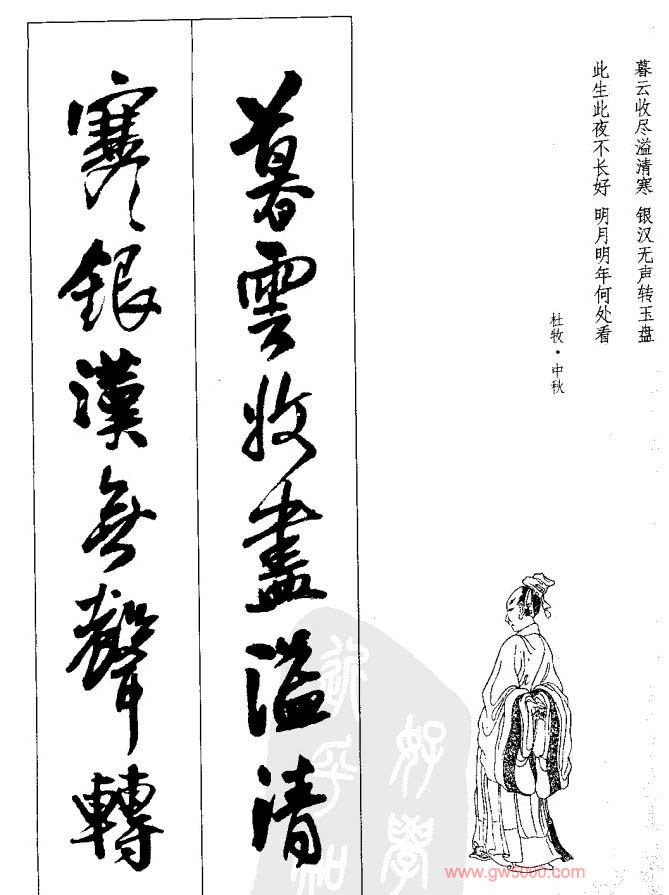 暮云收尽溢清寒 银汉无声转玉盘
此生此夜不长好 明月明年何处看
杜牧·中秋
暮雲收盡溢清
寒銀漢無聲轉
好學
www.gw5000.com